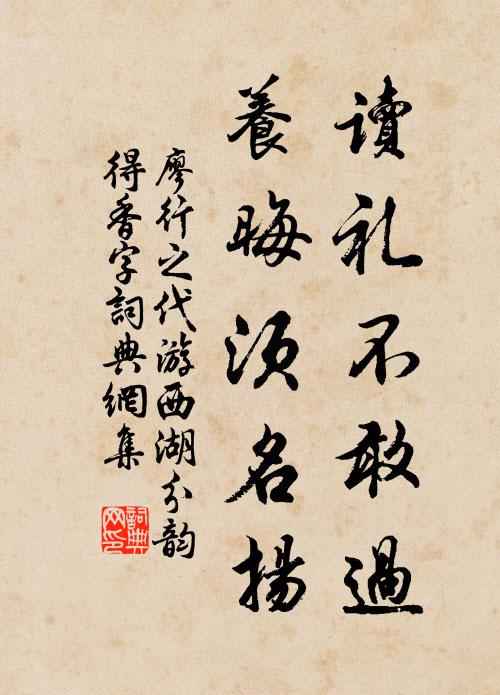 讀礼不敢過
養晦須名揚
廖行之代游西湖分韵
得香字詞典網集
詞典
网印